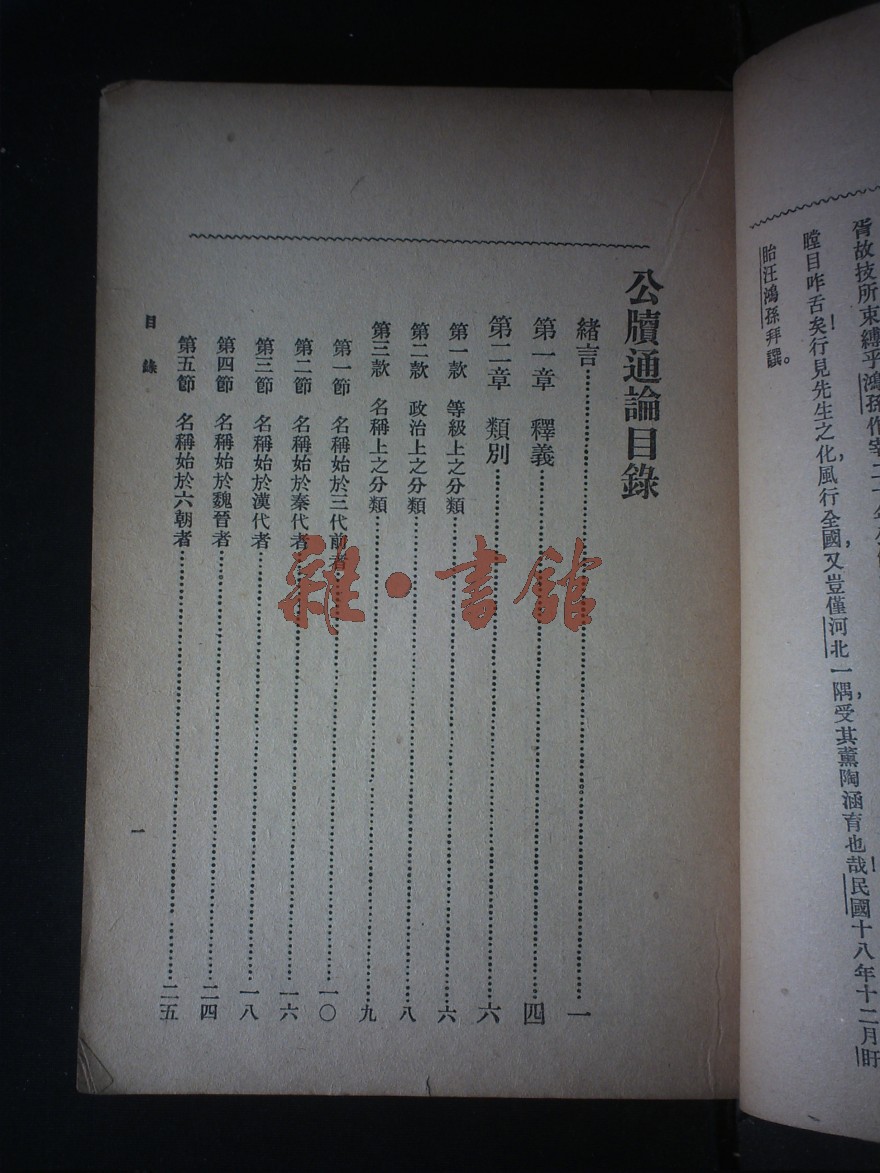 胥故技所束縛乎鴻孫作宰二十年
瞠目咋舌矣!行見先生之化,風行全國,又豈僅河北一隅,受其薰陶涵育也哉!民國十八年十二月盱
眙汪鴻孫拜譔。
公牘通論目錄
緒言……一
第一章 釋義……四
第二章 類別……六
第一款 等級上之分類……六
第二款 政治上之分類……八
第三款 名稱上之分類……九
第一節 名稱始於三代前者……一〇
第二節 名稱始於秦代者……一六
第三節 名稱始於漢代者……一八
第四節 名稱始於魏晉者……二四
第五節 名稱始於六朝者……二五
目錄
一
雜·書館